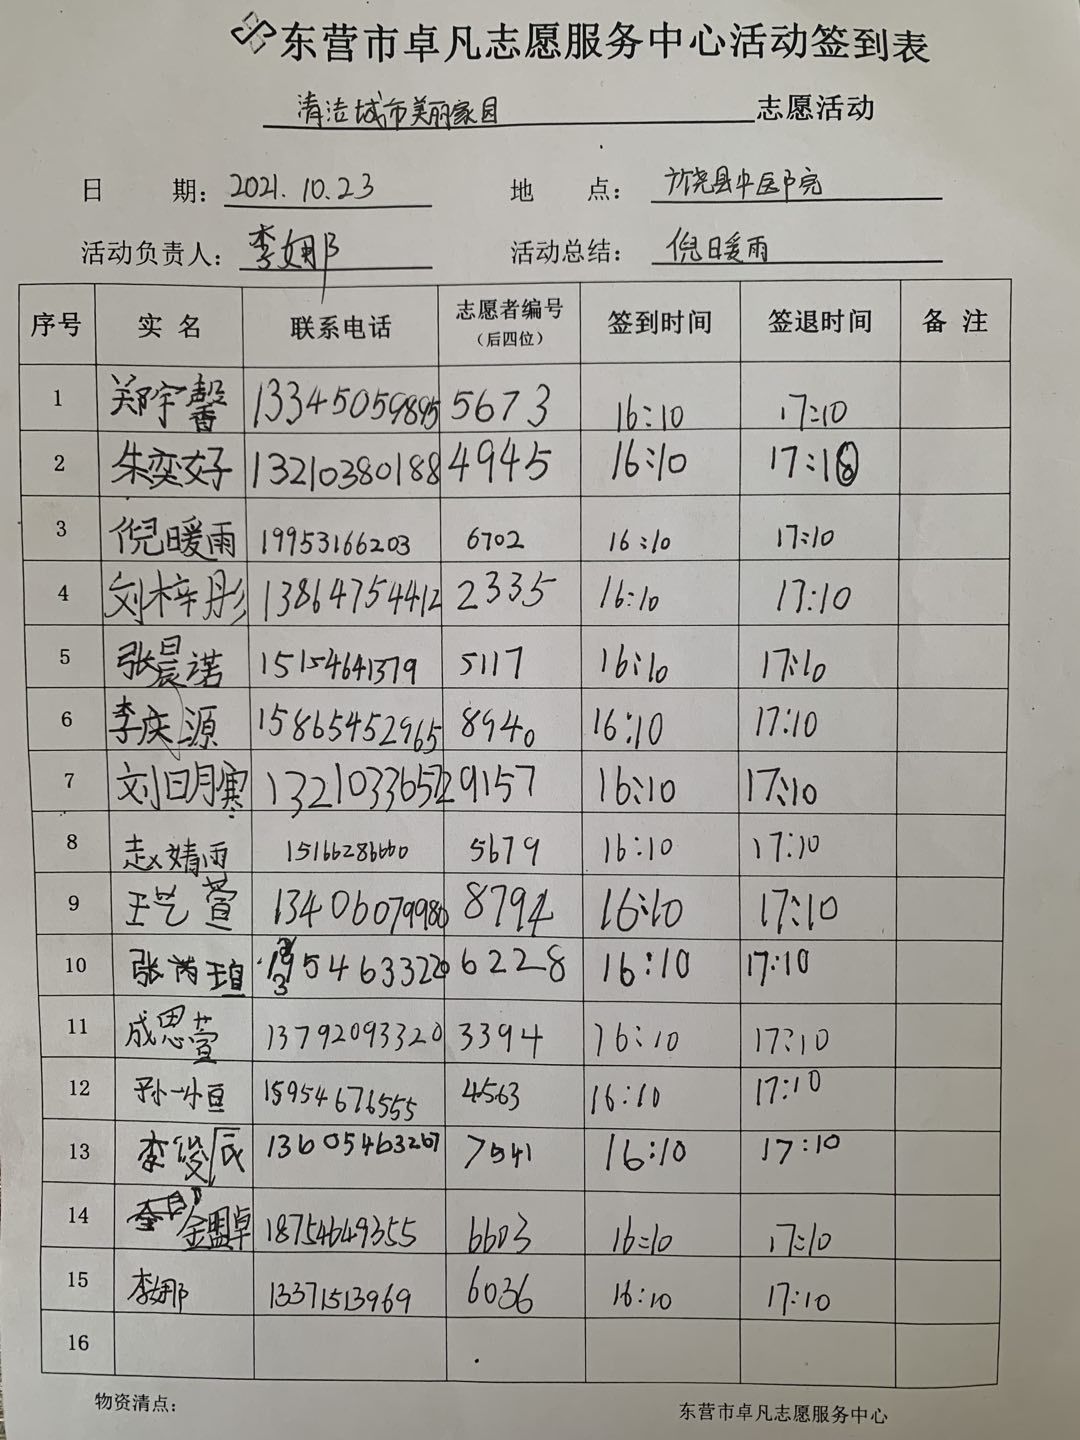 东营市卓凡志愿服务中心活动签到表
清洁城市美丽家园 志愿活动
日 期: 2021.10.23 地 点: 广饶县中医院
活动负责人: 李娜 活动总结: 倪暖雨
序号 实名 联系电话 志愿者编号(后四位) 签到时间 签退时间 备注
1 郑宇馨 13345059895 5673 16:10 17:10
2 朱奕好 13210380188 4945 16:10 17:10
3 倪暖雨 19953166203 6702 16:10 17:10
4 刘梓彤 13864754412 2335 16:10 17:10
5 张晨诺 15154641379 5117 16:10 17:10
6 李庆源 15865452965 8940 16:10 17:10
7 刘明寒 13210336572 9157 16:10 17:10
8 赵婧雨 15166286660 5679 16:10 17:10
9 王艺萱 13406079980 8794 16:10 17:10
10 张芮瑄 6228 16:10 17:10
11 成思萱 13792093320 3394 16:10 17:10
12 孙一恒 15954676555 4563 16:10 17:10
13 李俊辰 13605463267 7541 16:10 17:10
14 金盟卓 18754649355 6603 16:10 17:10
15 李娜 13371513969 6036 16:10 17:10
16
物资清点: 东营市卓凡志愿服务中心